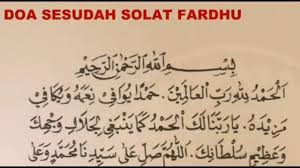 DOA SESUDAH SOLAT FARDHU
بِسْمِ اللهِ الرَّحْمٰنِ الرَّحِيْمِ
اَلْحَمْدُ لِلّٰهِ رَبِّ الْعَالَمِيْنَ. حَمْدًا يُوَافِيْ نِعَمَهُ وَيُكَافِيْ
مَزِيْدَهُ. يَارَبَّنَا لَكَ الْحَمْدُ كَمَا يَنْبَغِيْ لِجَلَالِ وَجْهِكَ
وَعَظِيْمِ سُلْطَانِكَ. اَللّٰهُمَّ صَلِّ عَلَى سَيِّدِنَا مُحَمَّدٍ وَعَلَى